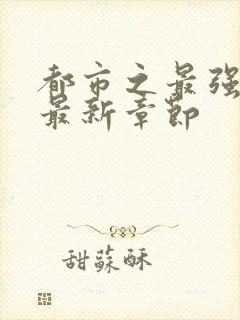 都市之最强
最新章节
甜蘇酥